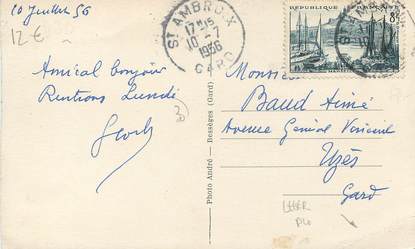 10 Juillet 56
12 €
Amical bonjour
Rentrons Lundi
ST AMBROIX
17H15
10-7
1956
GARD
REPUBLIQUE FRANÇAISE
8F
Photo André — Bessèges (Gard)
Monsieur
Baud Aimé
Avenue Général Vincent
Uzès
Gard